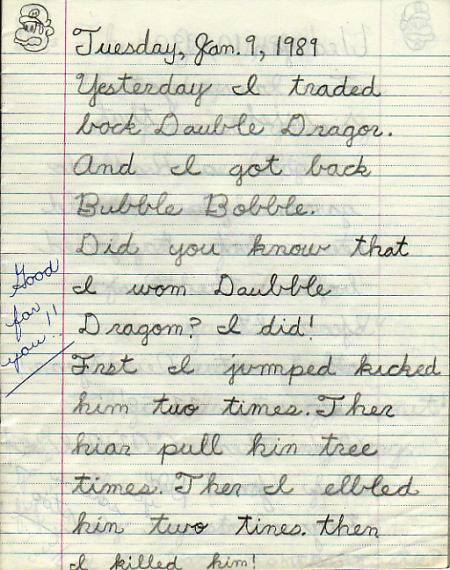 Tuesday, Jan. 9, 1989
Yesterday I traded
back Dauble Dragor.
And I got back
Bubble Bobble.
Did you know that
I wom Daubble
Dragom? I did!
Good
for
you!!
Frst I jumped kicked
him two times. Ther
hiar pull hin tree
times. Ther I elbled
hin two tines. then
I killed him!